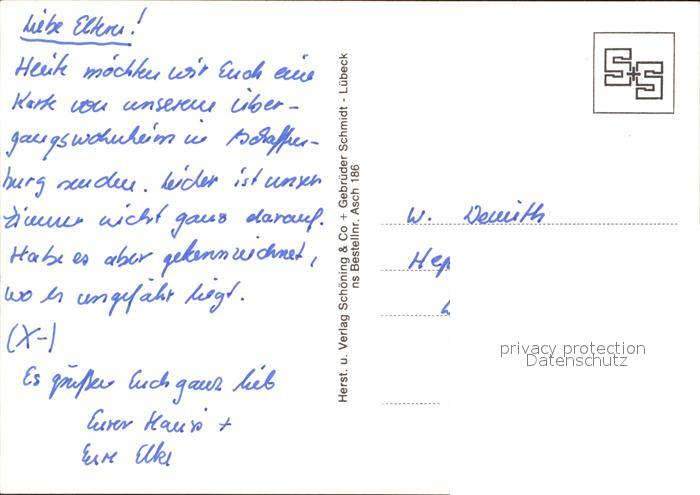 Liebe Eltern!
Heute möchten wir Euch eine
Karte von unserem Über-
gangswohnheim in Aschaffen-
burg senden. Leider ist unser
Zimmer nicht ganz darauf.
Habe es aber gekennzeichnet,
wo es ungefähr liegt.
(X-)
Es grüßen Euch ganz lieb
Eurer Hans +
Eure Elke
Herst. u. Verlag Schöning & Co + Gebrüder Schmidt - Lübeck
ns Bestellnr. Asch 186
S+S
W.
privacy protection
Datenschutz